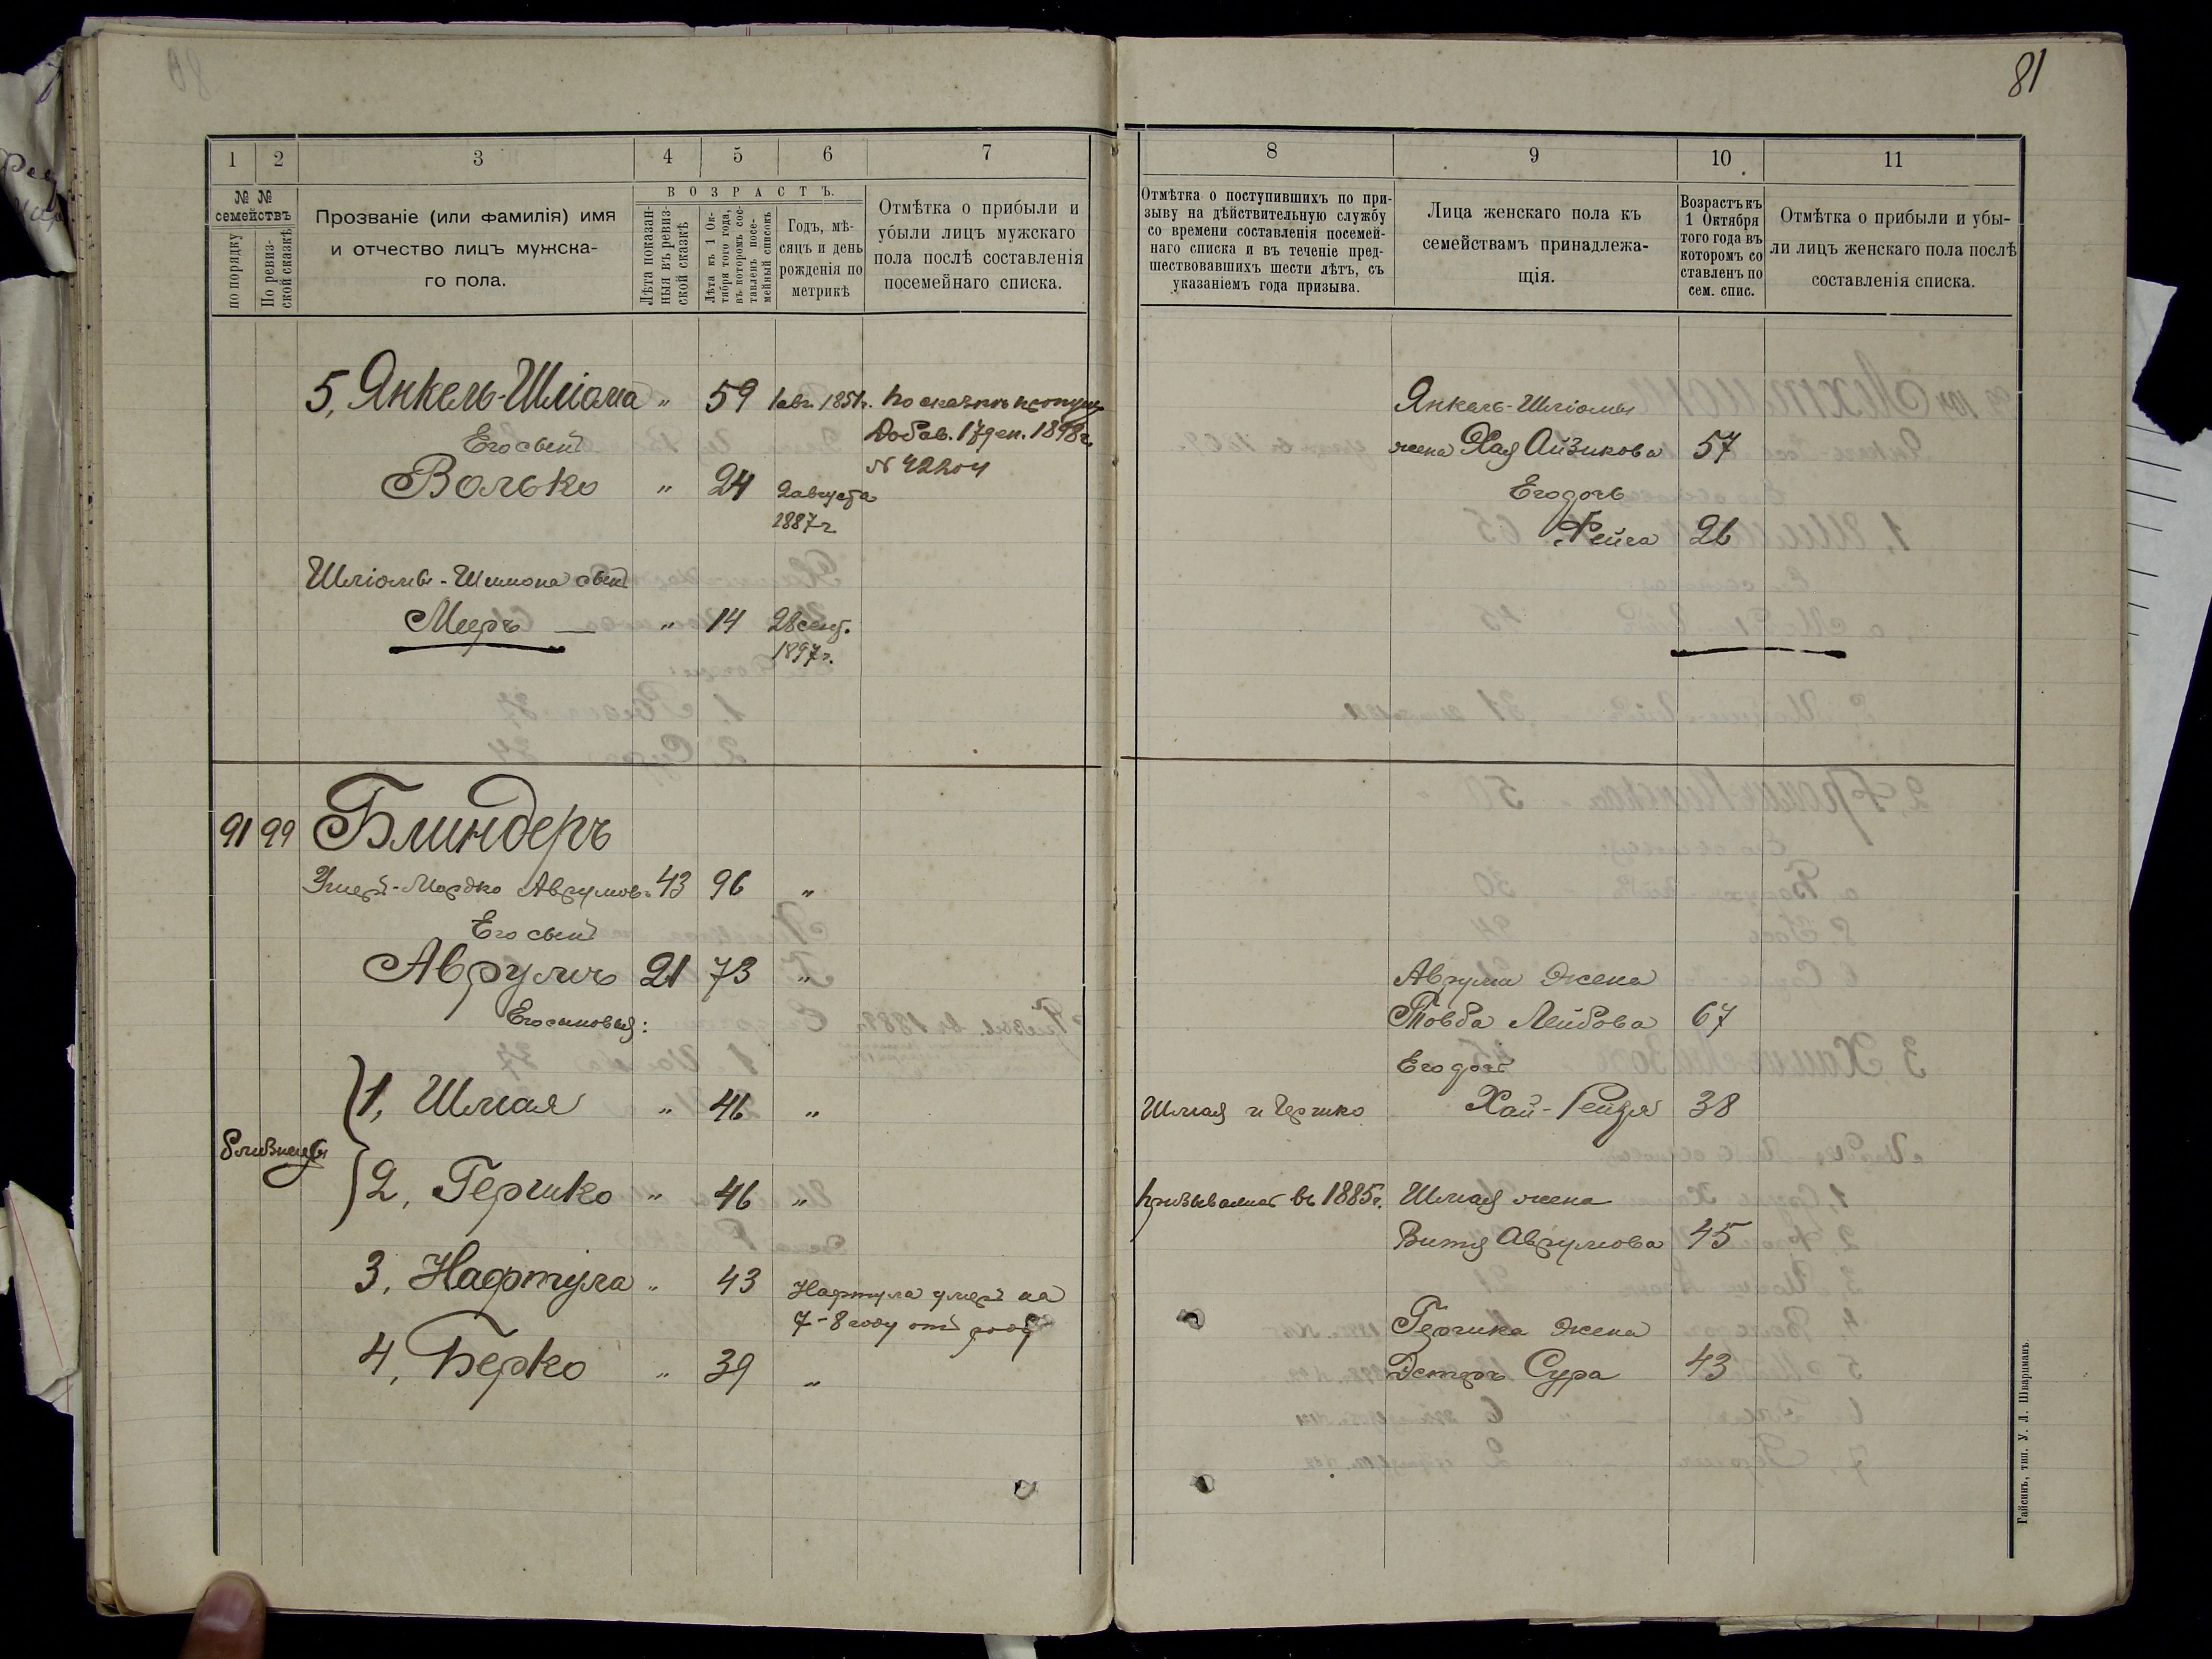 81
1 2 3 4 5 6 7
№ №
семействъ
по порядку
По ревиз-
ской сказкѣ
Прозваніе (или фамилія) имя
и отчество лицъ мужска-
го пола.
ВОЗРАСТЪ.
Лѣта показан-
ныя въ ревиз-
ской сказкѣ
Лѣта къ 1 Ок-
тября того года,
въ которомъ сос-
тавленъ посе-
мейный списокъ
Годъ, мѣ-
сяцъ и день
рожденія по
метрикѣ
Отмѣтка о прибыли и
убыли лицъ мужскаго
пола послѣ составленія
посемейнаго списка.
5, Янкель-Шліома " 59 1 авг. 1851г. По сказкѣ
Добав. 17 ден. 1898г.
Его сынъ
№ 42204
Волько " 24 2 августа
1887г
Шліомы-Шимона сынъ
Мееръ — " 14 28 сент.
1897г.
91 99 Блиндеръ
Умеръ-Мордко Аврумов. 43 96 "
Его сынъ
Аврумъ 21 73 "
Его сыновья:
1, Шмая " 46 "
близнецы
2, Гершко " 46 "
3, Нафтула " 43 Нафтула умеръ на
7-8 году отъ роду
4, Берко " 39 "
8 9 10 11
Отмѣтка о поступившихъ по при-
зыву на дѣйствительную службу
со времени составленія посемей-
наго списка и въ теченіе пред-
шествовавшихъ шести лѣтъ, съ
указаніемъ года призыва.
Лица женскаго пола къ
семействамъ принадлежа-
щія.
Возрастъ къ
1 Октября
того года въ
которомъ со
ставленъ по
сем. спис.
Отмѣтка о прибыли и убы-
ли лицъ женскаго пола послѣ
составленія списка.
Янкель-Шліомы
жена Хая Айзикова 57
Его дочь
Фейга 26
Аврума жена
Товба Лейбова 67
Его дочь
Шмая и Гершко Хая-Рейзя 38
призывались въ 1885г. Шмая жена
Витя Аврумова 45
Гершка жена
Эстеръ Сура 43
Гайсинъ, тип. У. Л. Шварцманъ.